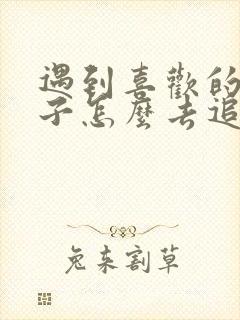 遇到喜歡的
子怎麼去追
兔来割草